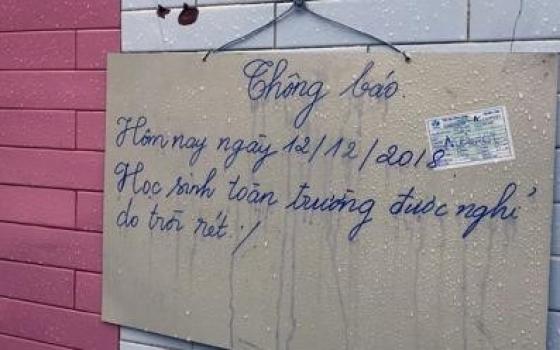 Thông báo.
Hôm nay ngày 12/12/2018
Học sinh toàn trường được nghỉ
do trời rét./